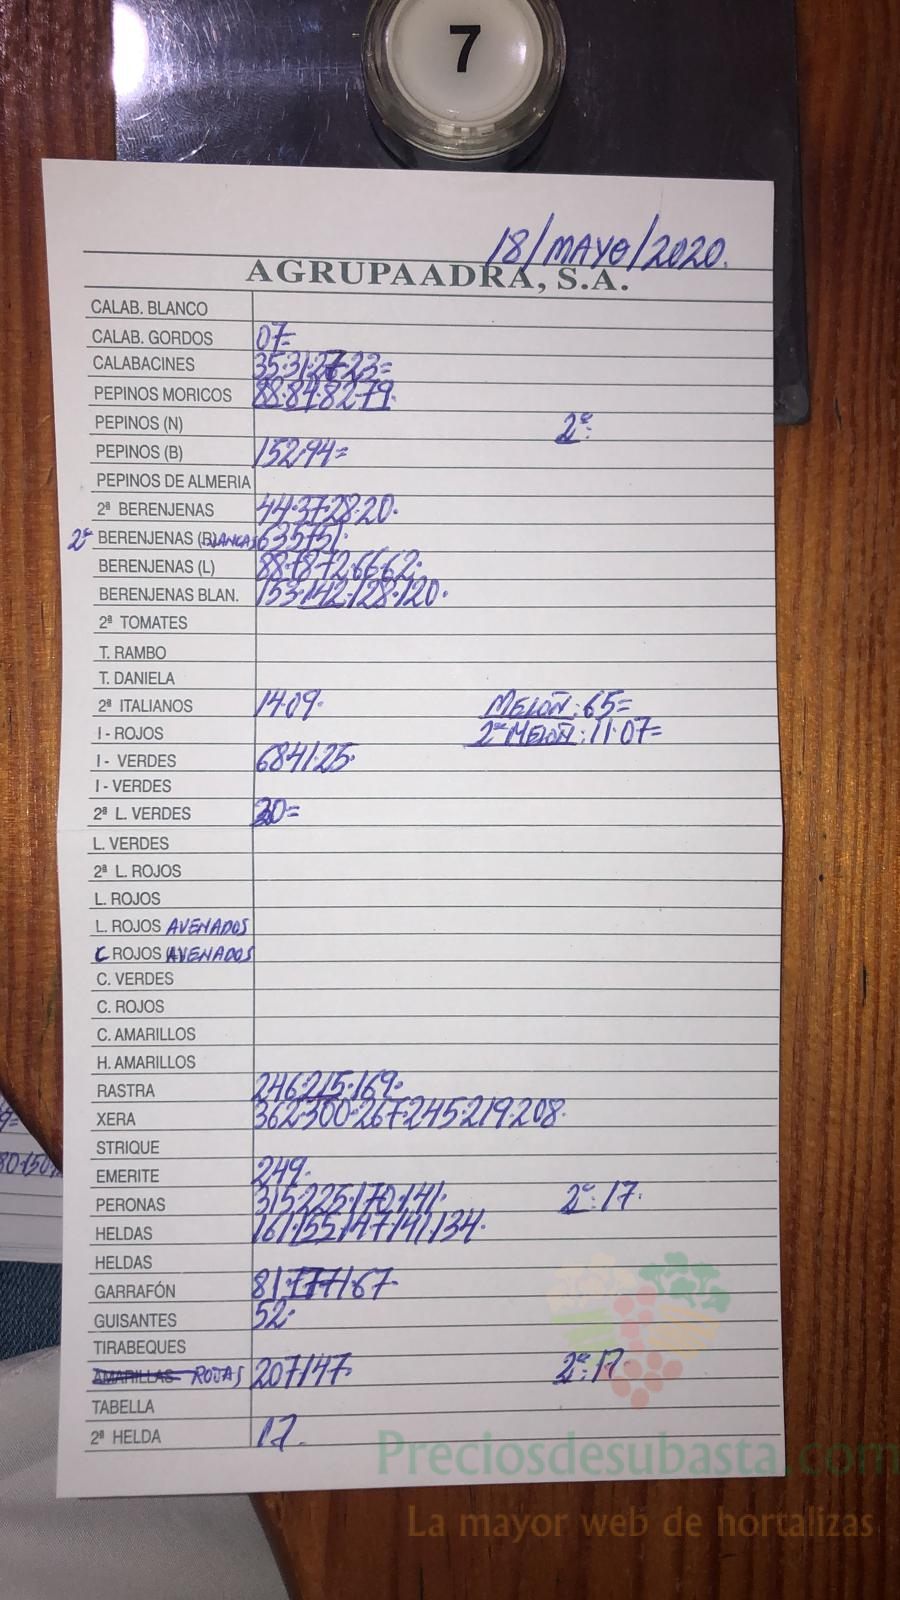 7
18/MAYO/2020.
AGRUPAADRA, S.A.
CALAB. BLANCO
CALAB. GORDOS 07=
CALABACINES 35·31·27·23=
PEPINOS MORICOS 88·84·82·79.
PEPINOS (N) 2ª:
PEPINOS (B) 152·94=
PEPINOS DE ALMERIA
2ª BERENJENAS 44·37·28·20.
2ª BERENJENAS (BLANCAS 63·57·51.
BERENJENAS (L) 88·78·72·66·62.
BERENJENAS BLAN. 153·142·128·120.
2ª TOMATES
T. RAMBO
T. DANIELA
2ª ITALIANOS 14·09. MELOÑ: 65=
I - ROJOS 2ª MELOÑ: 11·07=
I - VERDES 68·41·25.
I - VERDES
2ª L. VERDES 20=
L. VERDES
2ª L. ROJOS
L. ROJOS
L. ROJOS AVENADOS
C ROJOS AVENADOS
C. VERDES
C. ROJOS
C. AMARILLOS
H. AMARILLOS
RASTRA 246·215·169.
XERA 362·300·267·245·219·208.
STRIQUE
EMERITE 249.
PERONAS 315·225·170·141. 2ª: 17.
HELDAS 161·155·147·141·134.
HELDAS
GARRAFÓN 81·77·71·67.
GUISANTES 52.
TIRABEQUES
AMARILLAS ROJAS 207·147. 2ª: 17.
TABELLA
2ª HELDA 17.
Preciosdesubasta.com
La mayor web de hortalizas